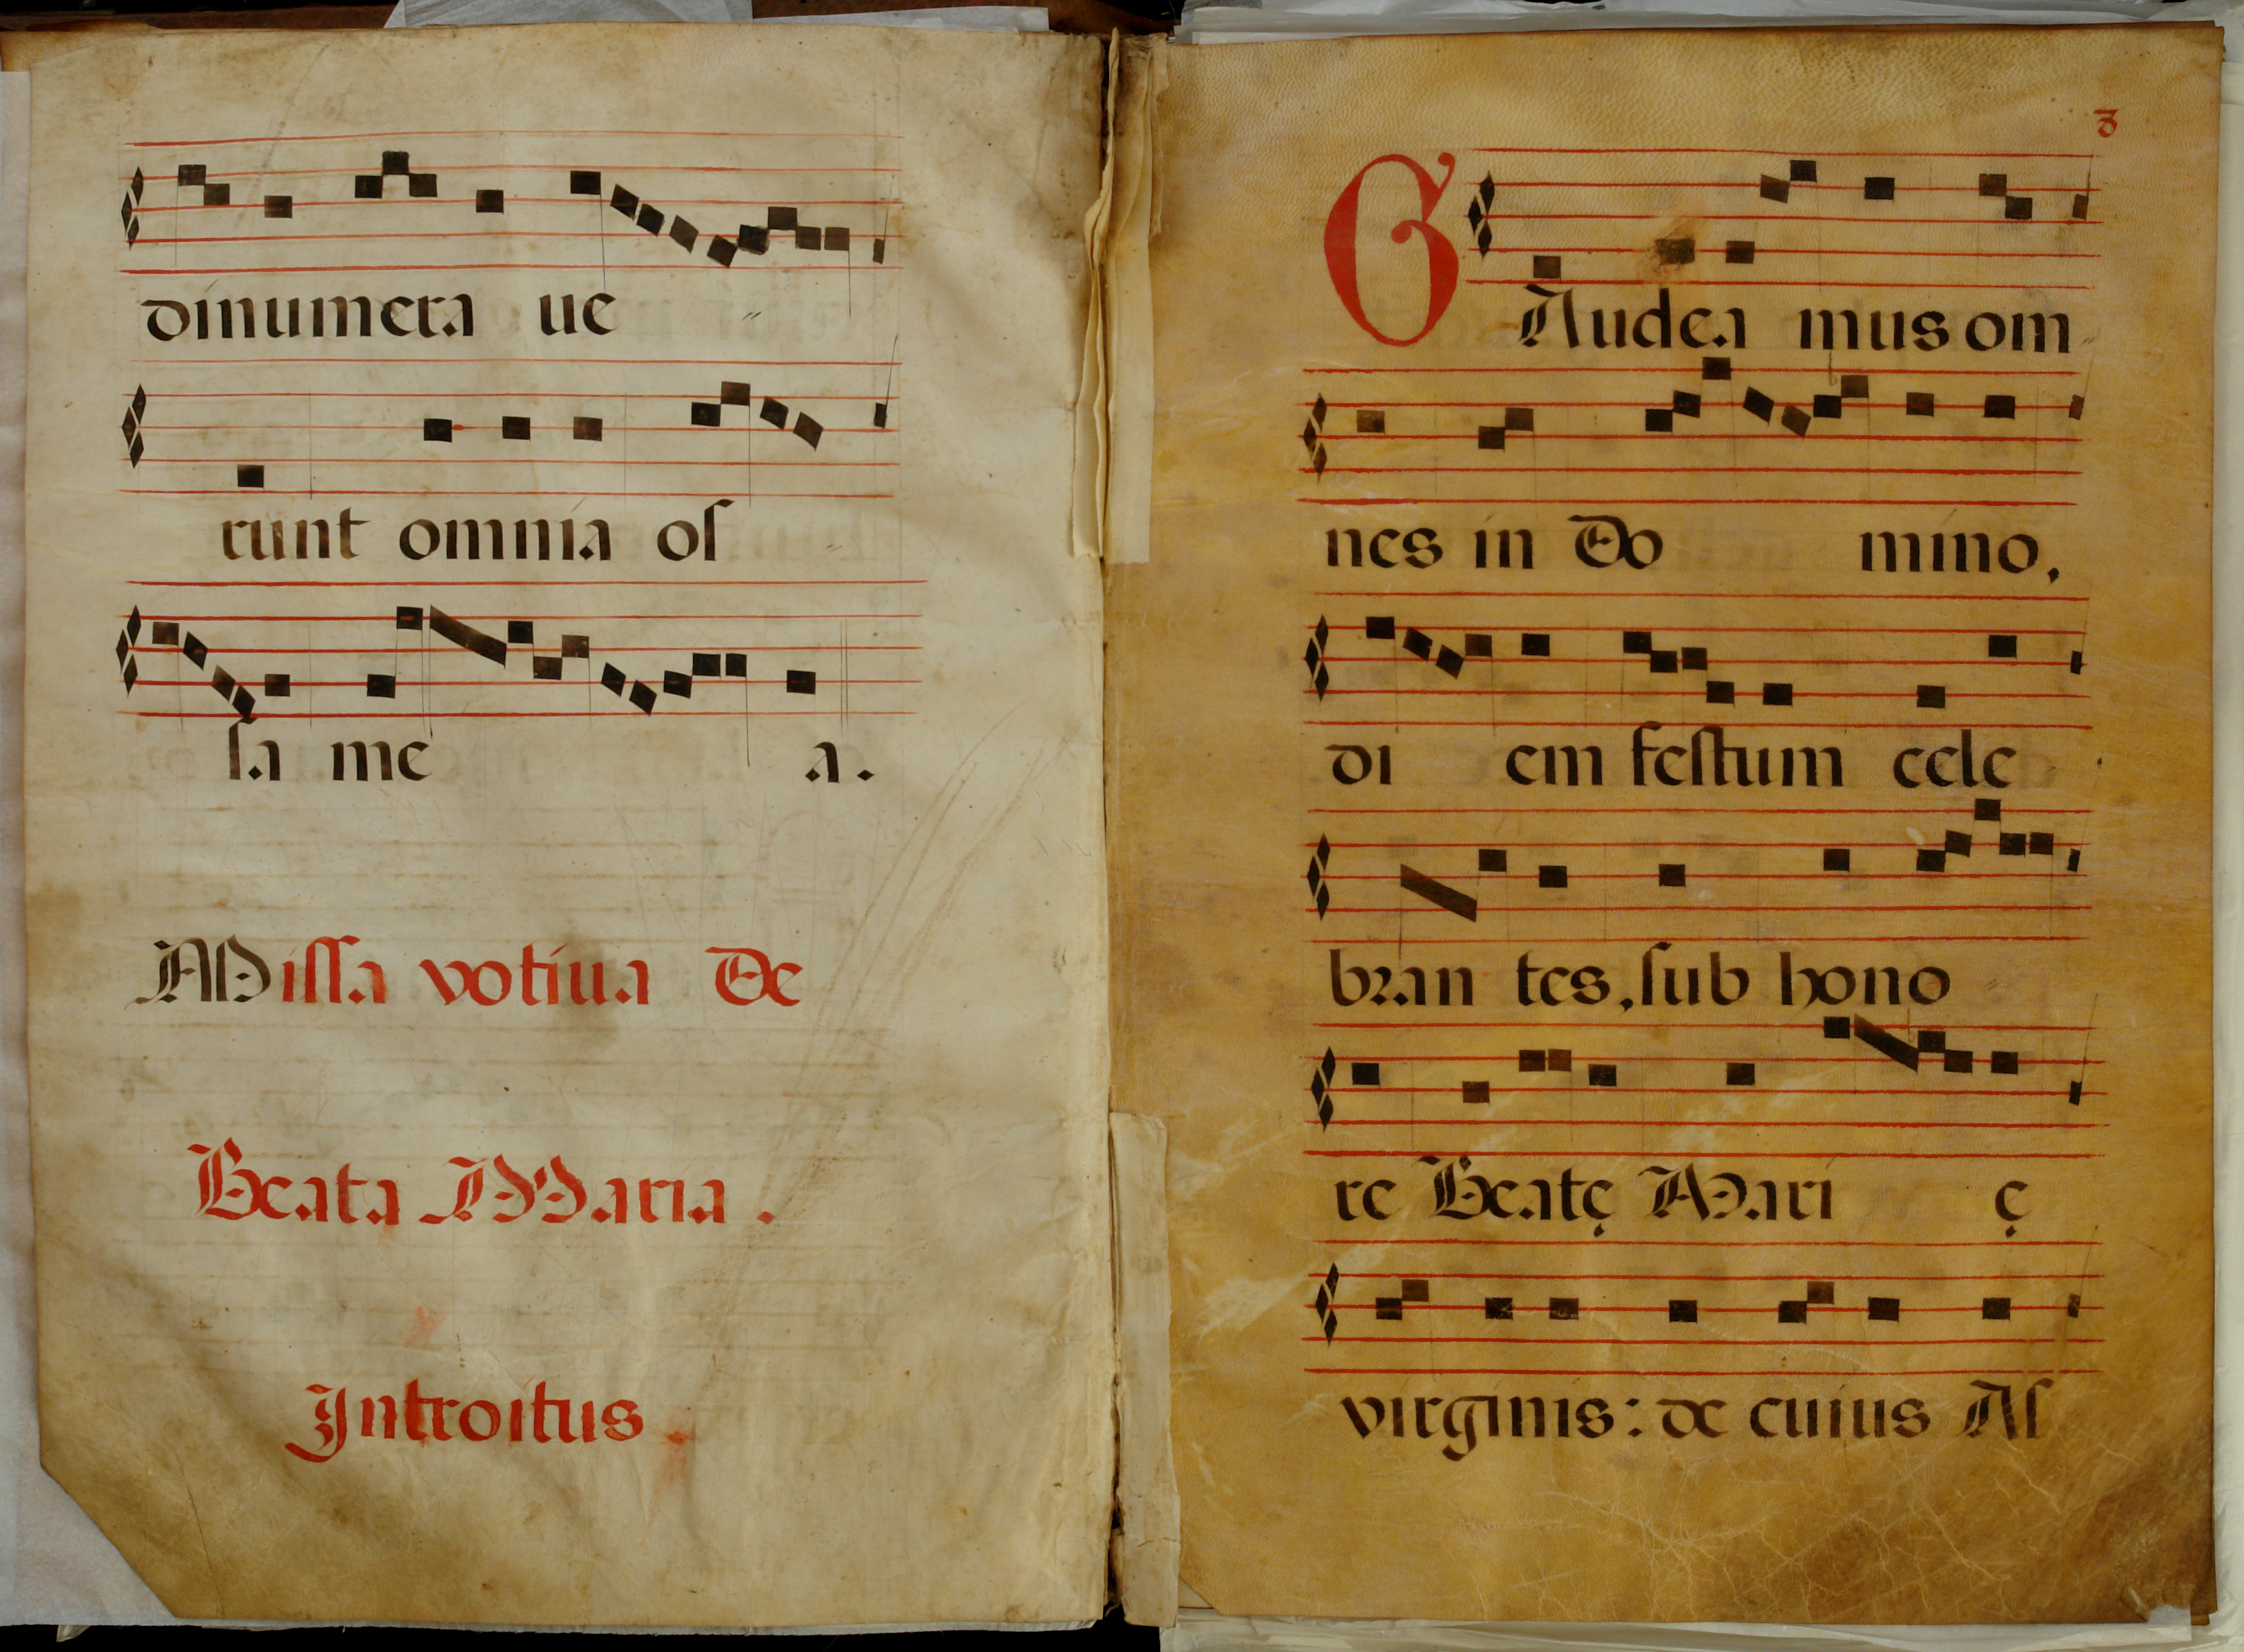 dinumera ue
runt omnia oſ
ſa me a.
Miſſa votiua De
Beata Maria.
Introitus.
3
GAudea mus om
nes in Do mino,
di em feſtum cele
bꝛan tes, ſub hono
re Beatę Mari ę
virginis: de cuius Aſ